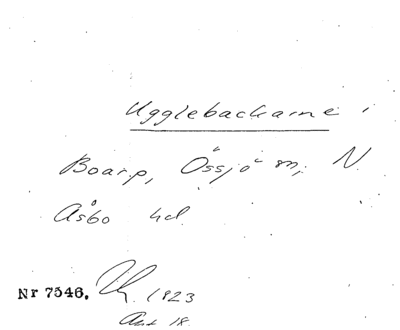 Ugglebackarne i
Boarp, Össjö sn; N.
Åsbo hd.
Nr 7546. 1923